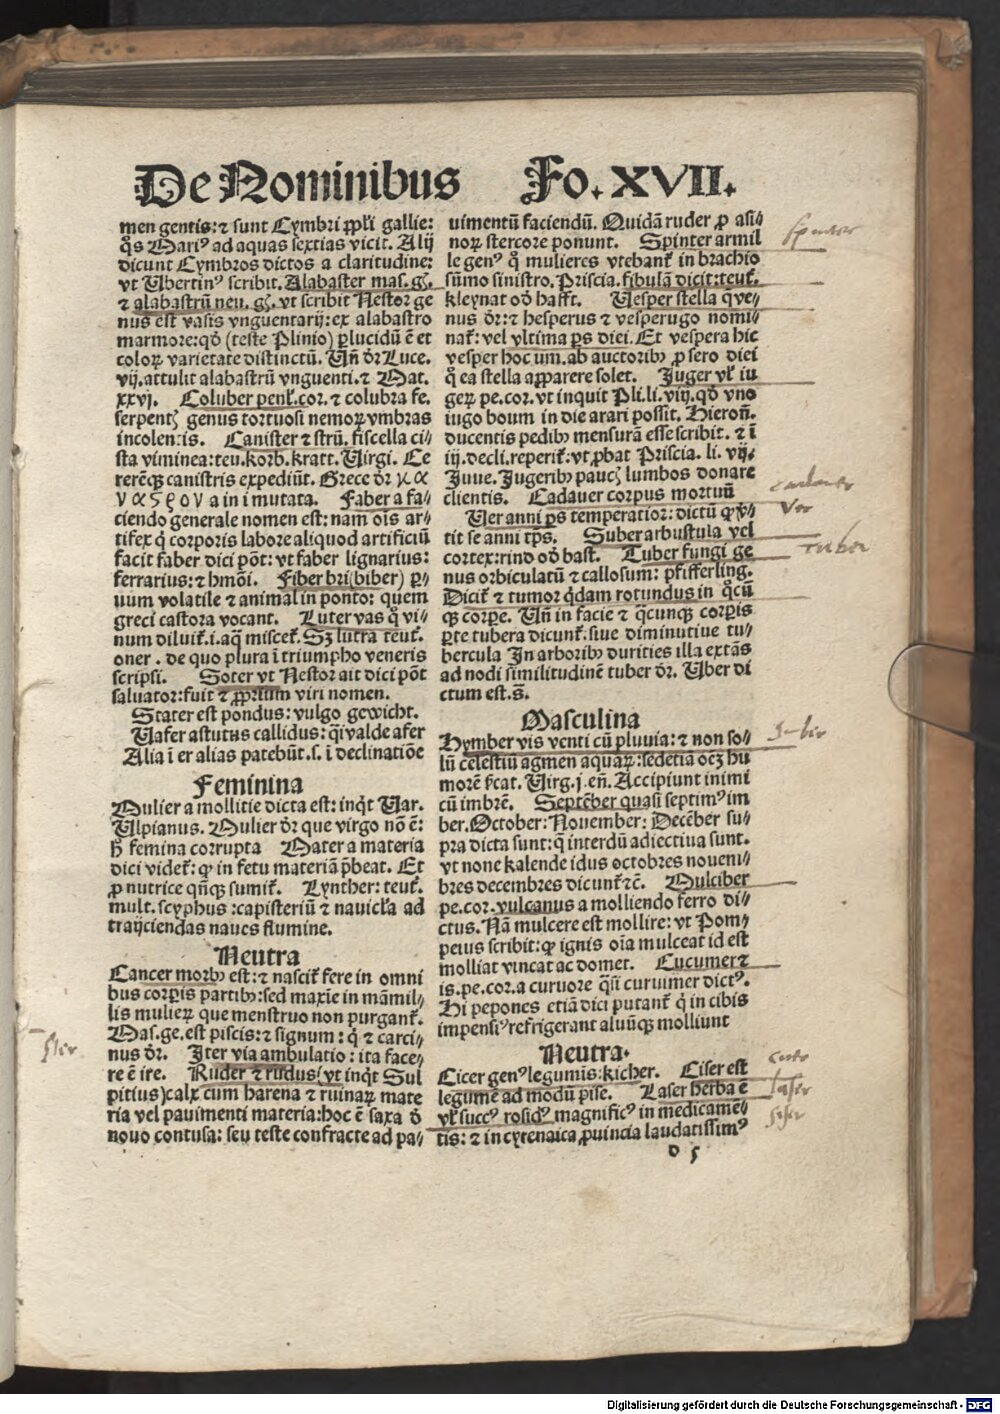 De Nominibus Fo. XVII.
men gentis: ⁊ sunt Cymbri ꝓpl'i gallie:
q̄s Mariꝰ ad aquas sextias vicit. Alij
dicunt Cymbros dictos a claritudine:
vt Vbertinꝰ scribit. Alabaster mas. gñ.
⁊ alabastrū neu. gñ. vt scribit Nestor ge
nus est vasis vnguentarij: ex alabastro
marmore: qđ (teste Plinio) ꝑlucidū ē et
coloꝝ varietate distinctū. Vñ dr̄ Luce.
vij. attulit alabastrū vnguenti. ⁊ Mat.
xxvj. Coluber penl'. cor. ⁊ colubra fe.
serpentꝭ genus tortuosi nemoꝝ vmbras
incolentis. Canister ⁊ strū. fiscella ci⸗
sta viminea: teu. korb. kratt. Virgi. Ce
rerēqꝫ canistris expediūt. Grece dr̄ κα
νασρον a in i mutata. Faber a fa⸗
ciendo generale nomen est: nam oīs ar⸗
tifex q̇ corporis labore aliquod artificiū
facit faber dici pōt: vt faber lignarius:
ferrarius: ⁊ hmōi. Fiber bri (biber) ꝑ⸗
uum volatile ⁊ animal in ponto: quem
greci castora vocant. Luter vas q̊ vi⸗
num diluit̄. i. aq̄ miscet̄. Sꝫ lutra teut̄.
oner. de quo plura ī triumpho veneris
scripsi. Soter vt Nestor ait dici pōt
saluator: fuit ⁊ ꝓprium viri nomen.
Stater est pondus: vulgo gewicht.
Vafer astutus callidus: q̇si valde afer
Alia ī er alias patebūt. s. ī declinatiōe
Feminina
Mulier a mollitie dicta est: inq̇t Var.
Vlpianus. Mulier dr̄ que virgo nō ē:
hꝫ femina corrupta Mater a materia
dici videt̄: qꝫ in fetu materiā p̄beat. Et
ꝓ nutrice qn̄qꝫ sumit̄. Lynther: teut̄.
mult. scyphus: capisteriū ⁊ nauicl'a ad
traijciendas naues flumine.
Neutra
Cancer morbꝰ est: ⁊ nascit̄ fere in omni
bus corꝑis partibꝰ: sed maxīe in māmil⸗
lis mulieꝝ que menstruo non purgant̄.
Mas. ge. est piscis: ⁊ signum: q̇ ⁊ carci⸗
nus dr̄. Iter via ambulatio: ita face⸗
re ē ire. Ruder ⁊ rudus (vt inq̇t Sul
pitius) calx cum harena ⁊ ruinaꝝ mate
ria vel pauimenti materia: hoc ē saxa đ
nouo contusa: seu teste confracte ad pa⸗
uimentū faciendū. Quidā ruder ꝓ asi⸗
noꝝ stercore ponunt. Spinter armil
le genꝰ q̊ mulieres vtebant̄ in brachio
sūmo sinistro. Priscia. fibulā dicit: teut̄.
kleynat ođ hafft. Vesper stella q̄ ve⸗
nus dr̄: ⁊ hesperus ⁊ vesperugo nomi⸗
nat̄: vel vltima ꝑs diei. Et vespera hic
vesper hoc um. ab auctoribꝰ ꝓ sero diei
q̊ ea stella apparere solet. Iuger vl' iu
geꝝ pe. cor. vt inquit Pli. li. viij. qđ vno
iugo boum in die arari possit. Hieroñ.
ducentis pedibꝰ mensurā esse scribit. ⁊ ī
iij. decli. reperit̄: vt ꝓbat Priscia. li. vij.
Iuue. Iugeribꝰ paucꝭ lumbos donare
clientis. Cadauer corpus mortuū
Ver anni ꝑs temperatior: dictū qꝫ v̄⸗
tit se anni tp̄s. Suber arbustula vel
cortex: rind ođ bast. Tuber fungi ge
nus orbiculatū ⁊ callosum: pfifferling.
Dicit̄ ⁊ tumor q̇dam rotundus in q̊cū
qꝫ corꝑe. Vñ in facie ⁊ q̄cunqꝫ corꝑis
ꝑte tubera dicunt̄: siue diminutiue tu⸗
bercula In arboribꝰ durities illa extās
ad nodi similitudinē tuber dr̄. Vber di
ctum est. s̄.
Masculina
Hymber vis venti cū pluuia: ⁊ non so⸗
lū celestiū agmen aquaꝝ: sed etiā oēꝫ hu
morē ſcat. Virg. j. eñ. Accipiunt inimi
cū imbrē. Septēber quasi septimꝰ im
ber. October: Nouember: Decēber su⸗
pra dicta sunt: q̇ interdū adiectiua sunt.
vt none kalende idus octobres nouem⸗
bres decembres dicunt̄ ⁊c̄. Mulciber
pe. cor. vulcanus a molliendo ferro di⸗
ctus. Nā mulcere est mollire: vt Pom⸗
peius scribit: qꝫ ignis oīa mulceat id est
molliat vincat ac domet. Cucumer ⁊
is. pe. cor. a curuore q̇si curuimer dictꝰ.
Hi pepones etiā dici putant̄ q̇ in cibis
impensiꝰ refrigerant aluūqꝫ molliunt
Neutra.
Cicer genꝰ legumīs: kicher. Ciser est
legumē ad modū pise. Laser herba ē
vl' succꝰ rosidꝰ magnificꝰ in medicamē⸗
tis: ⁊ in cyrenaica ꝓuincia laudatissimꝰ
D 5
Spinter
cadauer
Ver
Tuber
Imber
Iter
ciser
laser
Digitalisierung gefördert durch die Deutsche Forschungsgemeinschaft - DFG